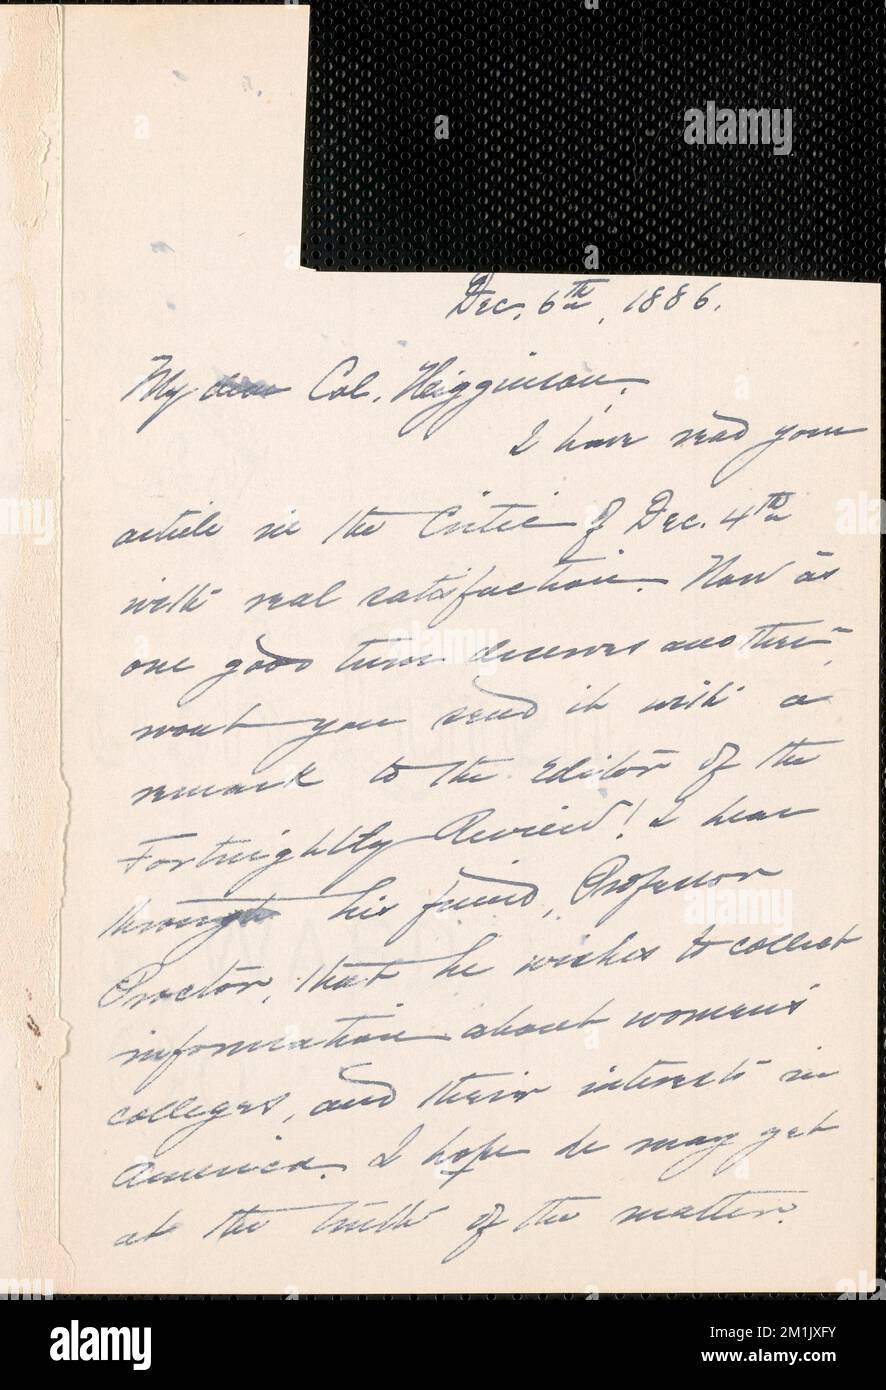 Dec. 6th, 1886.
My dear Col. Higginson,
I have read your
article in the Critic of Dec. 4th
with real satisfaction. Now as
one good turn deserves another,
wont you send it with a
remark to the Editor of the
Fortnightly Review! I hear
through his friend, Professor
Proctor, that he wishes to collect
information about women's
colleges, and their interests in
America. I hope he may get
at the truth of the matter.
alamy
a
alamy
Image ID: 2M1JXFY
www.alamy.com